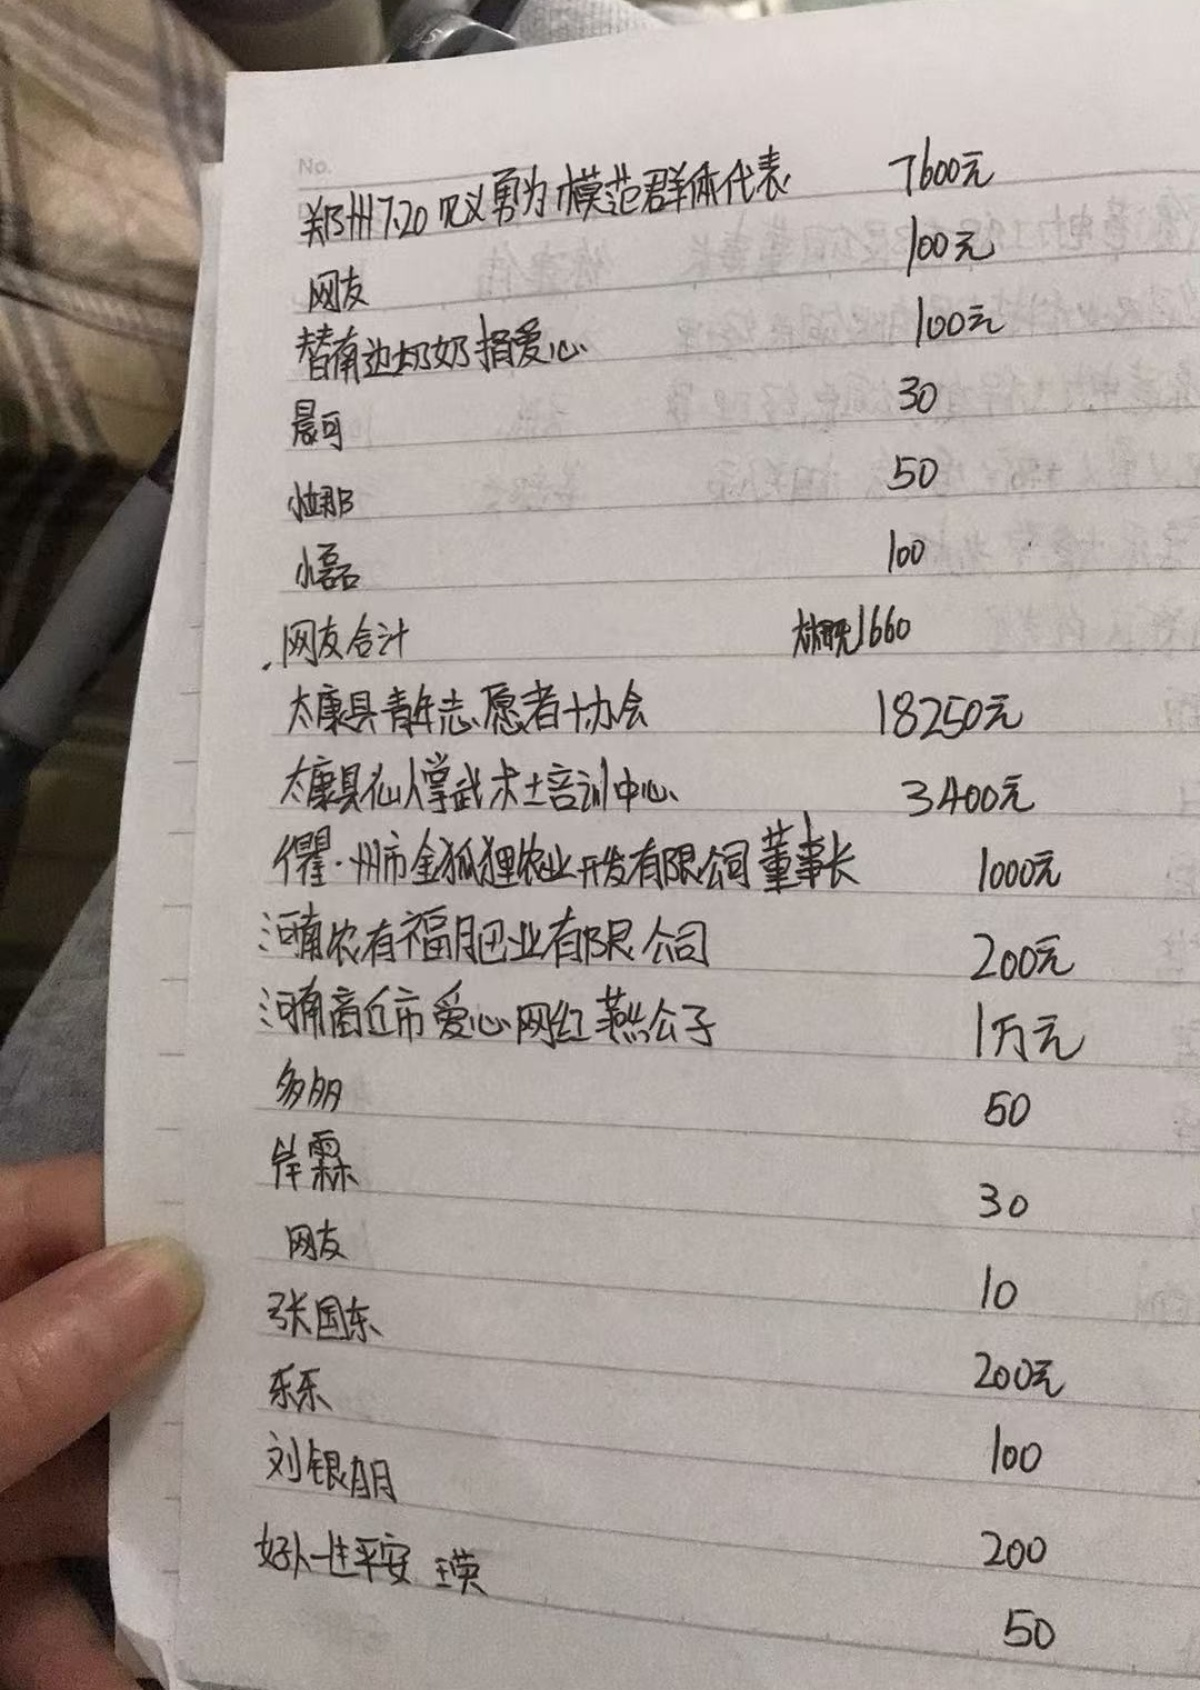 No.
郑州7.20见义勇为模范群体代表 7600元
网友 100元
替南边奶奶捐爱心 100元
晨可 30
小娜 50
小磊 100
网友合计 大概1660
太康县青年志愿者协会 18250元
太康县仙人掌武术培训中心 3400元
州市金狐狸农业开发有限公司董事长 1000元
河南农有福肥业有限公司 200元
河南商丘市爱心网红燕公子 1万元
多多 50
霖 30
网友 10
张国东 200元
乐乐 100
刘银朋 200
好人一生平安 王英 50